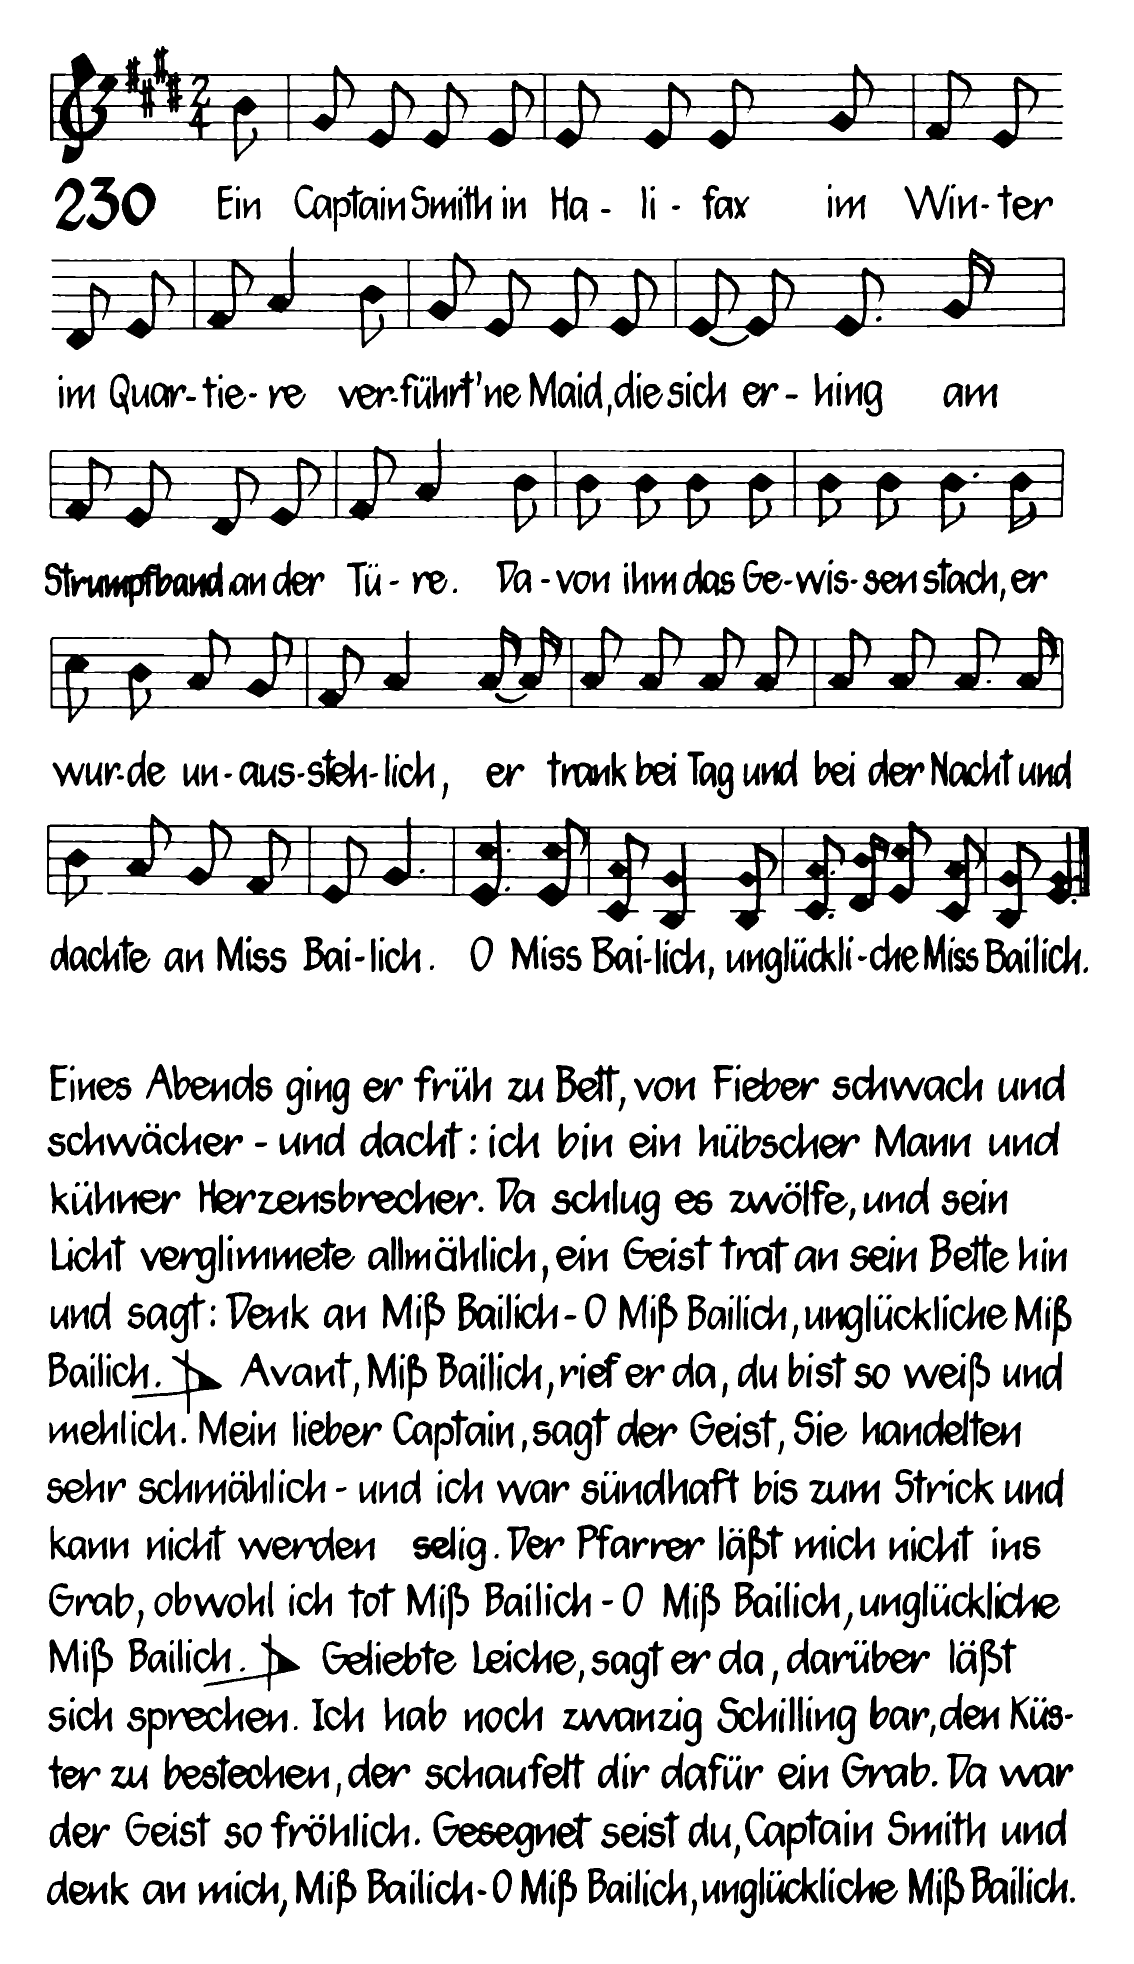 2
4
230 Ein Captain Smith in Ha - li - fax im Win- ter
im Quar- tie- re ver-führt 'ne Maid, die sich er - hing am
Strumpfband an der Tü - re. Da - von ihm das Ge-wis-sen stach, er
wur-de un-aus-steh-lich, er trank bei Tag und bei der Nacht und
dachte an Miss Bai-lich. O Miss Bai-lich, unglückli-che Miss Bailich.
Eines Abends ging er früh zu Bett, von Fieber schwach und
schwächer - und dacht: ich bin ein hübscher Mann und
kühner Herzensbrecher. Da schlug es zwölfe, und sein
Licht verglimmete allmählich, ein Geist trat an sein Bette hin
und sagt: Denk an Miß Bailich - O Miß Bailich, unglückliche Miß
Bailich. Avant, Miß Bailich, rief er da, du bist so weiß und
mehlich. Mein lieber Captain, sagt der Geist, Sie handelten
sehr schmählich - und ich war sündhaft bis zum Strick und
kann nicht werden selig. Der Pfarrer läßt mich nicht ins
Grab, obwohl ich tot Miß Bailich - O Miß Bailich, unglückliche
Miß Bailich. Geliebte Leiche, sagt er da, darüber läßt
sich sprechen. Ich hab noch zwanzig Schilling bar, den Küs-
ter zu bestechen, der schaufelt dir dafür ein Grab. Da war
der Geist so fröhlich. Gesegnet seist du, Captain Smith und
denk an mich, Miß Bailich - O Miß Bailich, unglückliche Miß Bailich.